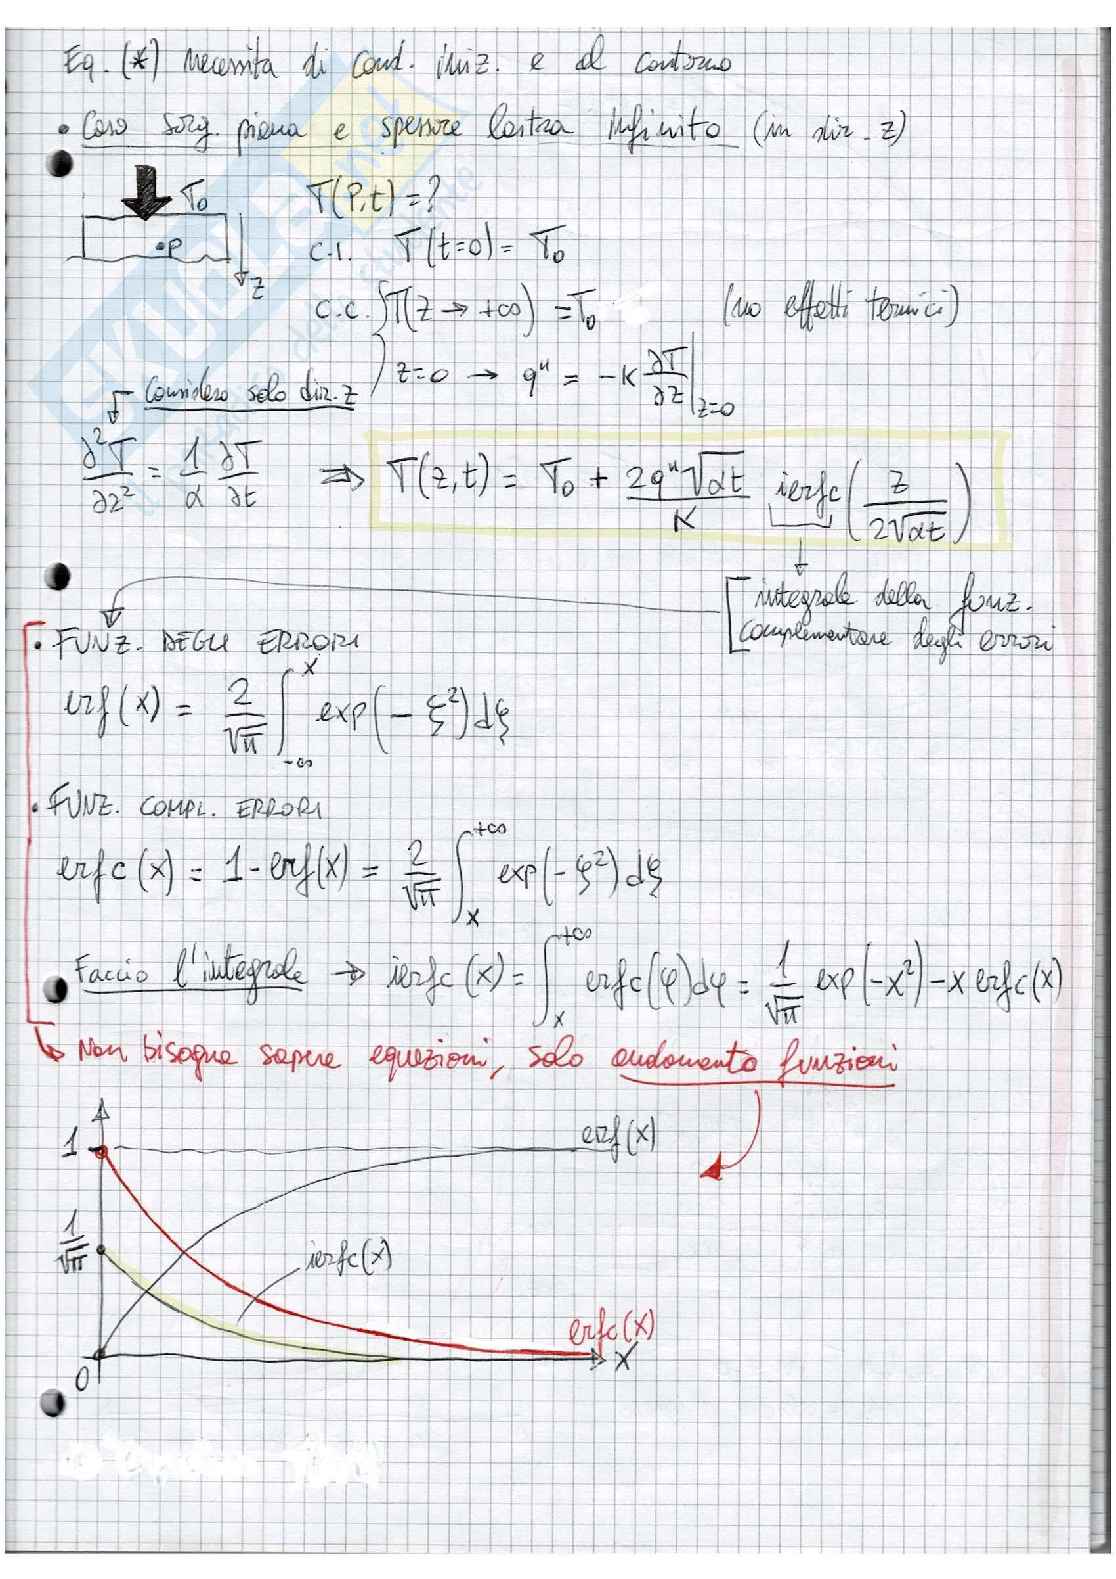 Eq. (*) necessita di cond. iniz. e al contorno
• Caso sorg. piana e spessore lastra infinito (in dir. z)
T₀
T(P,t) = ?
•P
z
C.I. T(t=0) = T₀
C.C. { T(z → +∞) = T₀ (no effetti termici)
z=0 → q" = -K ∂T/∂z |z=0
Considero solo dir. z
∂²T/∂z² = 1/α ∂T/∂t ⇒ T(z,t) = T₀ + 2q"√αt / K ierfc (z / 2√αt)
integrale della funz.
complementare degli errori
• FUNZ. DEGLI ERRORI
erf(x) = 2/√π ∫_{-∞}^{x} exp(-ξ²)dξ
• FUNZ. COMPL. ERRORI
erfc(x) = 1-erf(x) = 2/√π ∫_{x}^{+∞} exp(-ξ²)dξ
Faccio l'integrale → ierfc(x) = ∫_{x}^{+∞} erfc(φ)dφ = 1/√π exp(-x²) - x erfc(x)
↳ Non bisogna sapere equazioni, solo andamento funzioni
1
erf(x)
1/√π
ierfc(x)
erfc(x)
x
0